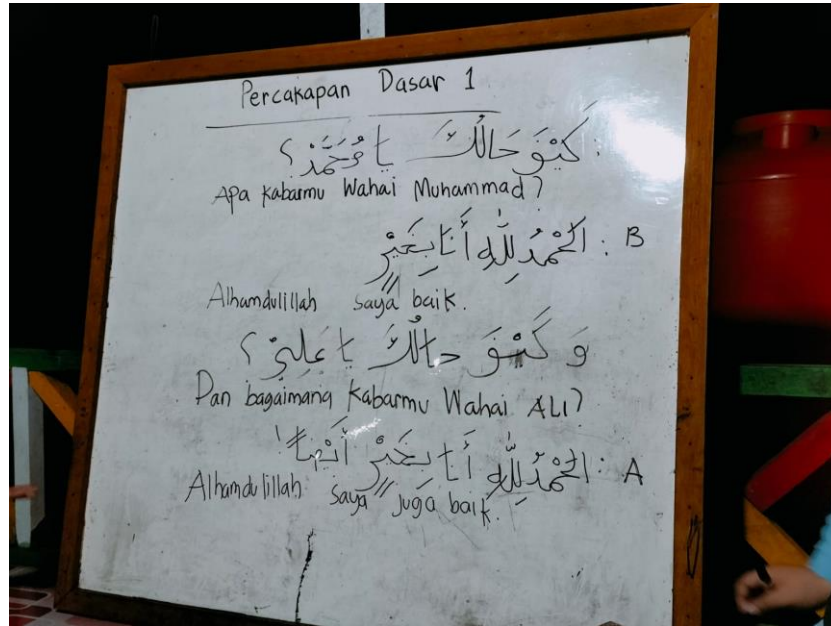 Percakapan Dasar 1
: كَيْفَ حَالُكَ يَا مُحَمَّدْ ؟
Apa kabarmu Wahai Muhammad?
B : الحَمْدُ لِلّٰهِ أَنَا بِخَيْرٍ
Alhamdulillah saya baik.
وَ كَيْفَ حَالُكَ يَا عَلِيْ ؟
Dan bagaimana kabarmu Wahai ALI?
A : الحَمْدُ لِلّٰهِ أَنَا بِخَيْرٍ أَيْضًا
Alhamdulillah saya juga baik.